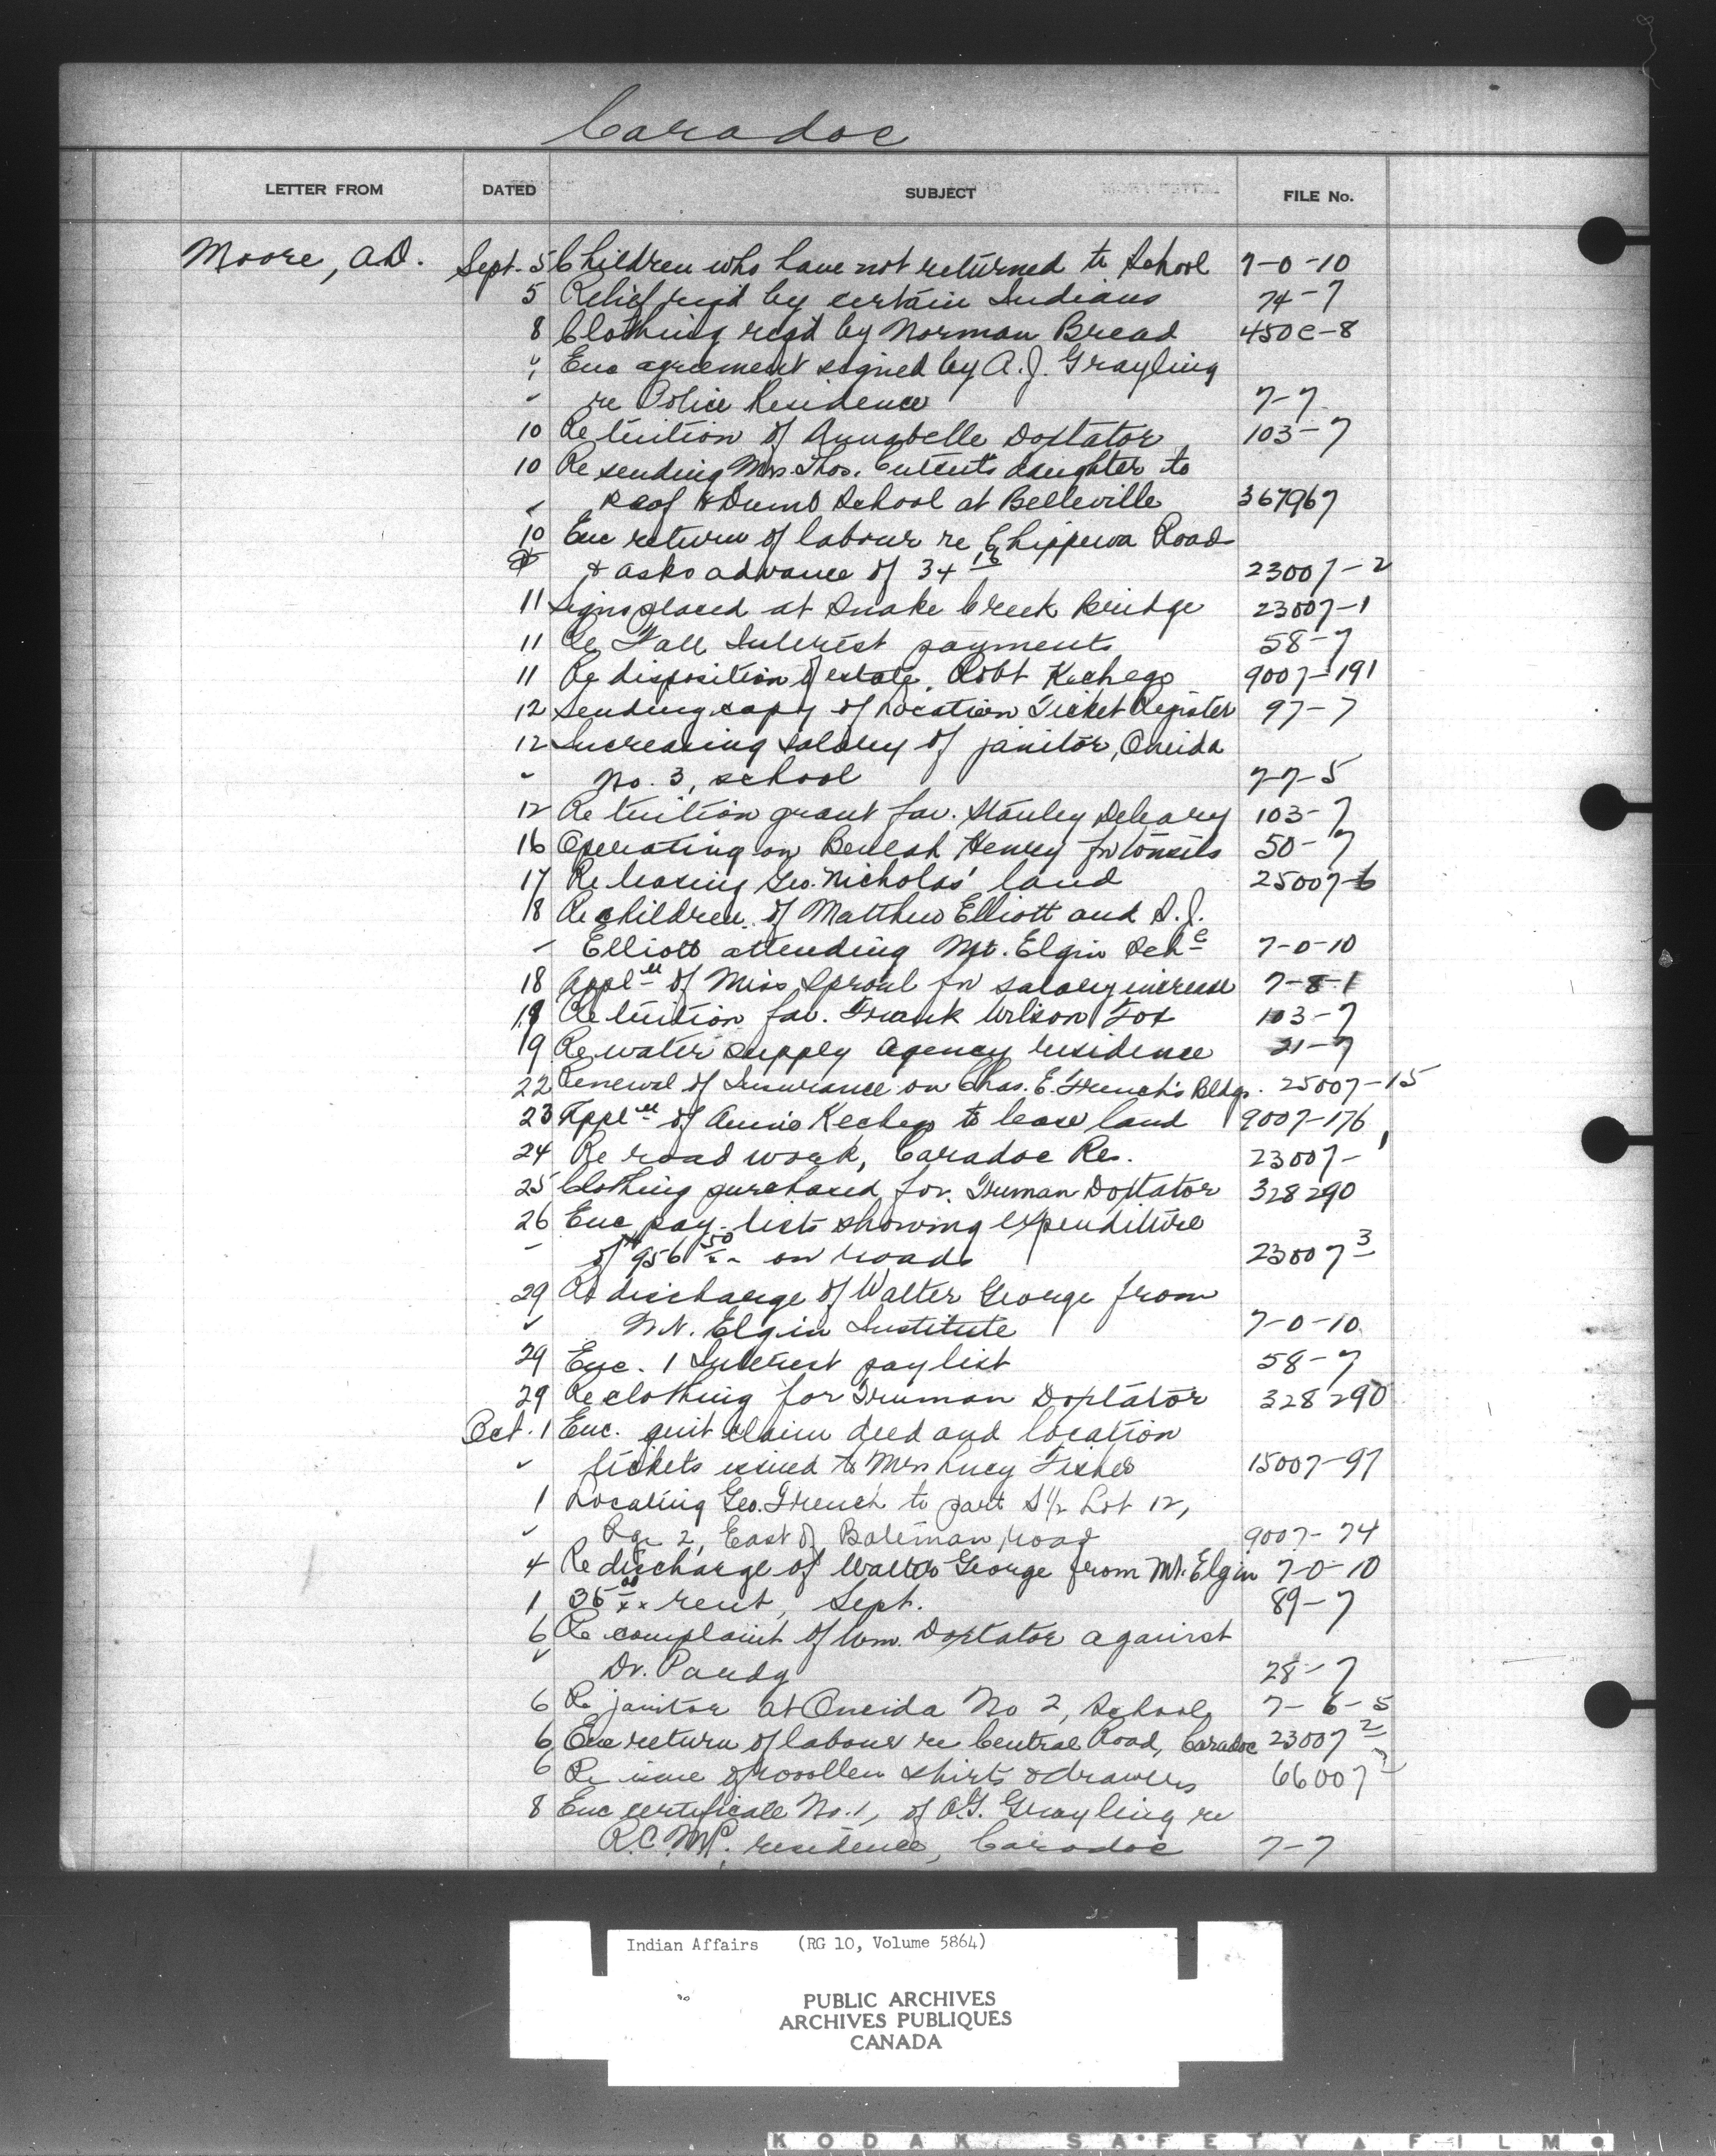 Caradoc
LETTER FROM DATED SUBJECT FILE No.
Moore, A.D. Sept. 5 Children who have not returned to School 7-0-10
5 Relief req'd by certain Indians 74-7
8 Clothing req'd by Norman Bread 450C-8
" Enc agreement signed by A.J. Grayling
" re Police Residence 7-7
10 Re tuition of Annabelle Doxtator 103-7
10 Re sending Mrs. Thos. daughter to
" Deaf & Dumb School at Belleville 367967
10 Enc return of labour re Chippewa Road
& asks advance of 34 16 23007-2
11 Signs placed at Snake Creek Bridge 23007-1
11 Re Fall Interest payments 58-7
11 Re disposition of estate, Robt Kechego 9007-191
12 Sending copy of Location Ticket Register 97-7
12 Increasing salary of janitor, Oneida
" No. 3, school 7-7-5
12 Re tuition grant fav. Stanley Deleary 103-7
16 Operating on Beulah Henry for tonsils 50-7
17 Re leasing Geo. Nicholas' land 25007-6
18 Re children of Matthew Elliott and S.J.
" Elliott attending Mt. Elgin Sch 7-0-10
18 Appl'n of Miss Sproul for salary increase 7-8-1
19 Re tuition fav. Frank Wilson Fox 103-7
19 Re water supply Agency residence 21-7
22 Renewal of Insurance on Chas. E. French's Bldgs. 25007-15
23 Appl'n of Annie Kechego to lease land 9007-176
24 Re road work, Caradoc Res. 23007-1
25 Clothing purchased for Truman Doxtator 328290
26 Enc pay-lists showing expenditure
" of $956 50 on roads 23007 3
29 Re discharge of Walter George from
" Mt. Elgin Institute 7-0-10
29 Enc. 1 Interest pay list 58-7
29 Re clothing for Truman Doxtator 328290
Oct. 1 Enc. quit claim deed and location
" tickets issued to Mrs Lucy Fisher 15007-97
1 Locating Geo. French to part S½ Lot 12,
" Rge 2, East of Bateman road 9007-74
4 Re discharge of Walter George from Mt. Elgin 7-0-10
1 35 00 rent, Sept. 89-7
6 Re complaint of Wm. Doxtator against
" Dr. 28-7
6 Re janitor at Oneida No 2, School 7-6-5
6 Enc return of labour re Central Road, Caradoc 23007 2
6 Re issue of woollen shirts & drawers 66007
8 Enc certificate No. 1, of A.J. Grayling re
R.C.M.P. residence, Caradoc 7-7
Indian Affairs (RG 10, Volume 5864)
PUBLIC ARCHIVES
ARCHIVES PUBLIQUES
CANADA
KODAK SAFETY FILM